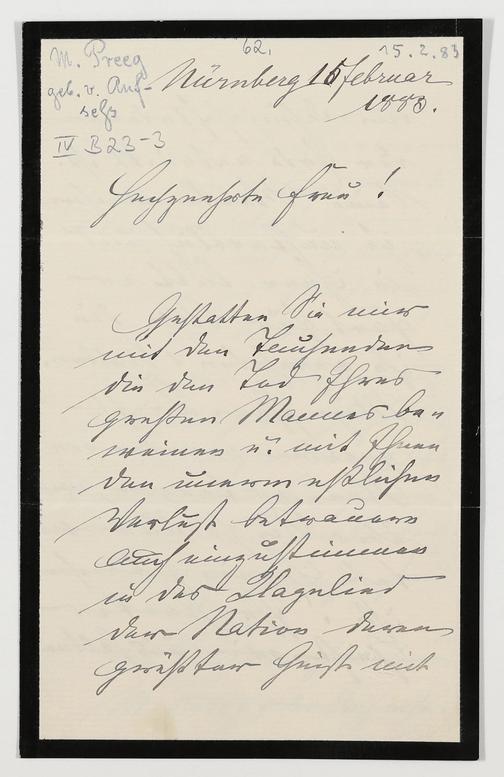 M. Preeg
geb. v. Auf-
seß
IV B23-3
62.
15.2.83
Nürnberg 15 Februar
1883.
Hochgeehrte Frau!
Gestatten Sie mir
mit den Tausenden
die den Tod Ihres
großen Mannes be-
weinen u. mit Ihnen
den unermeßlichen
Verlust betrauern
auch einzustimmen
in das Klagelied
der Nation deren
größter Geist mit